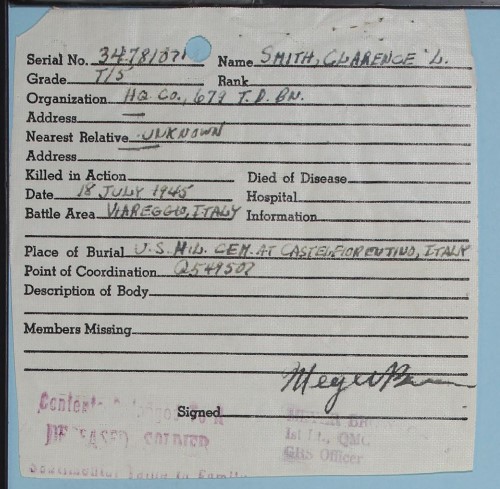 Serial No. 34781871 Name SMITH, CLARENCE L.
Grade T/5 Rank
Organization HQ. CO., 679 T.D. BN.
Address —
Nearest Relative UNKNOWN
Address
Killed in Action Died of Disease
Date 18 JULY 1945 Hospital
Battle Area VIAREGGIO, ITALY Information
Place of Burial U.S. MIL. CEM. AT CASTELFIORENTINO, ITALY
Point of Coordination Q549507
Description of Body
Members Missing
Signed
DECEASED SOLDIER
1st Lt., QMC
GRS Officer
Sentimental